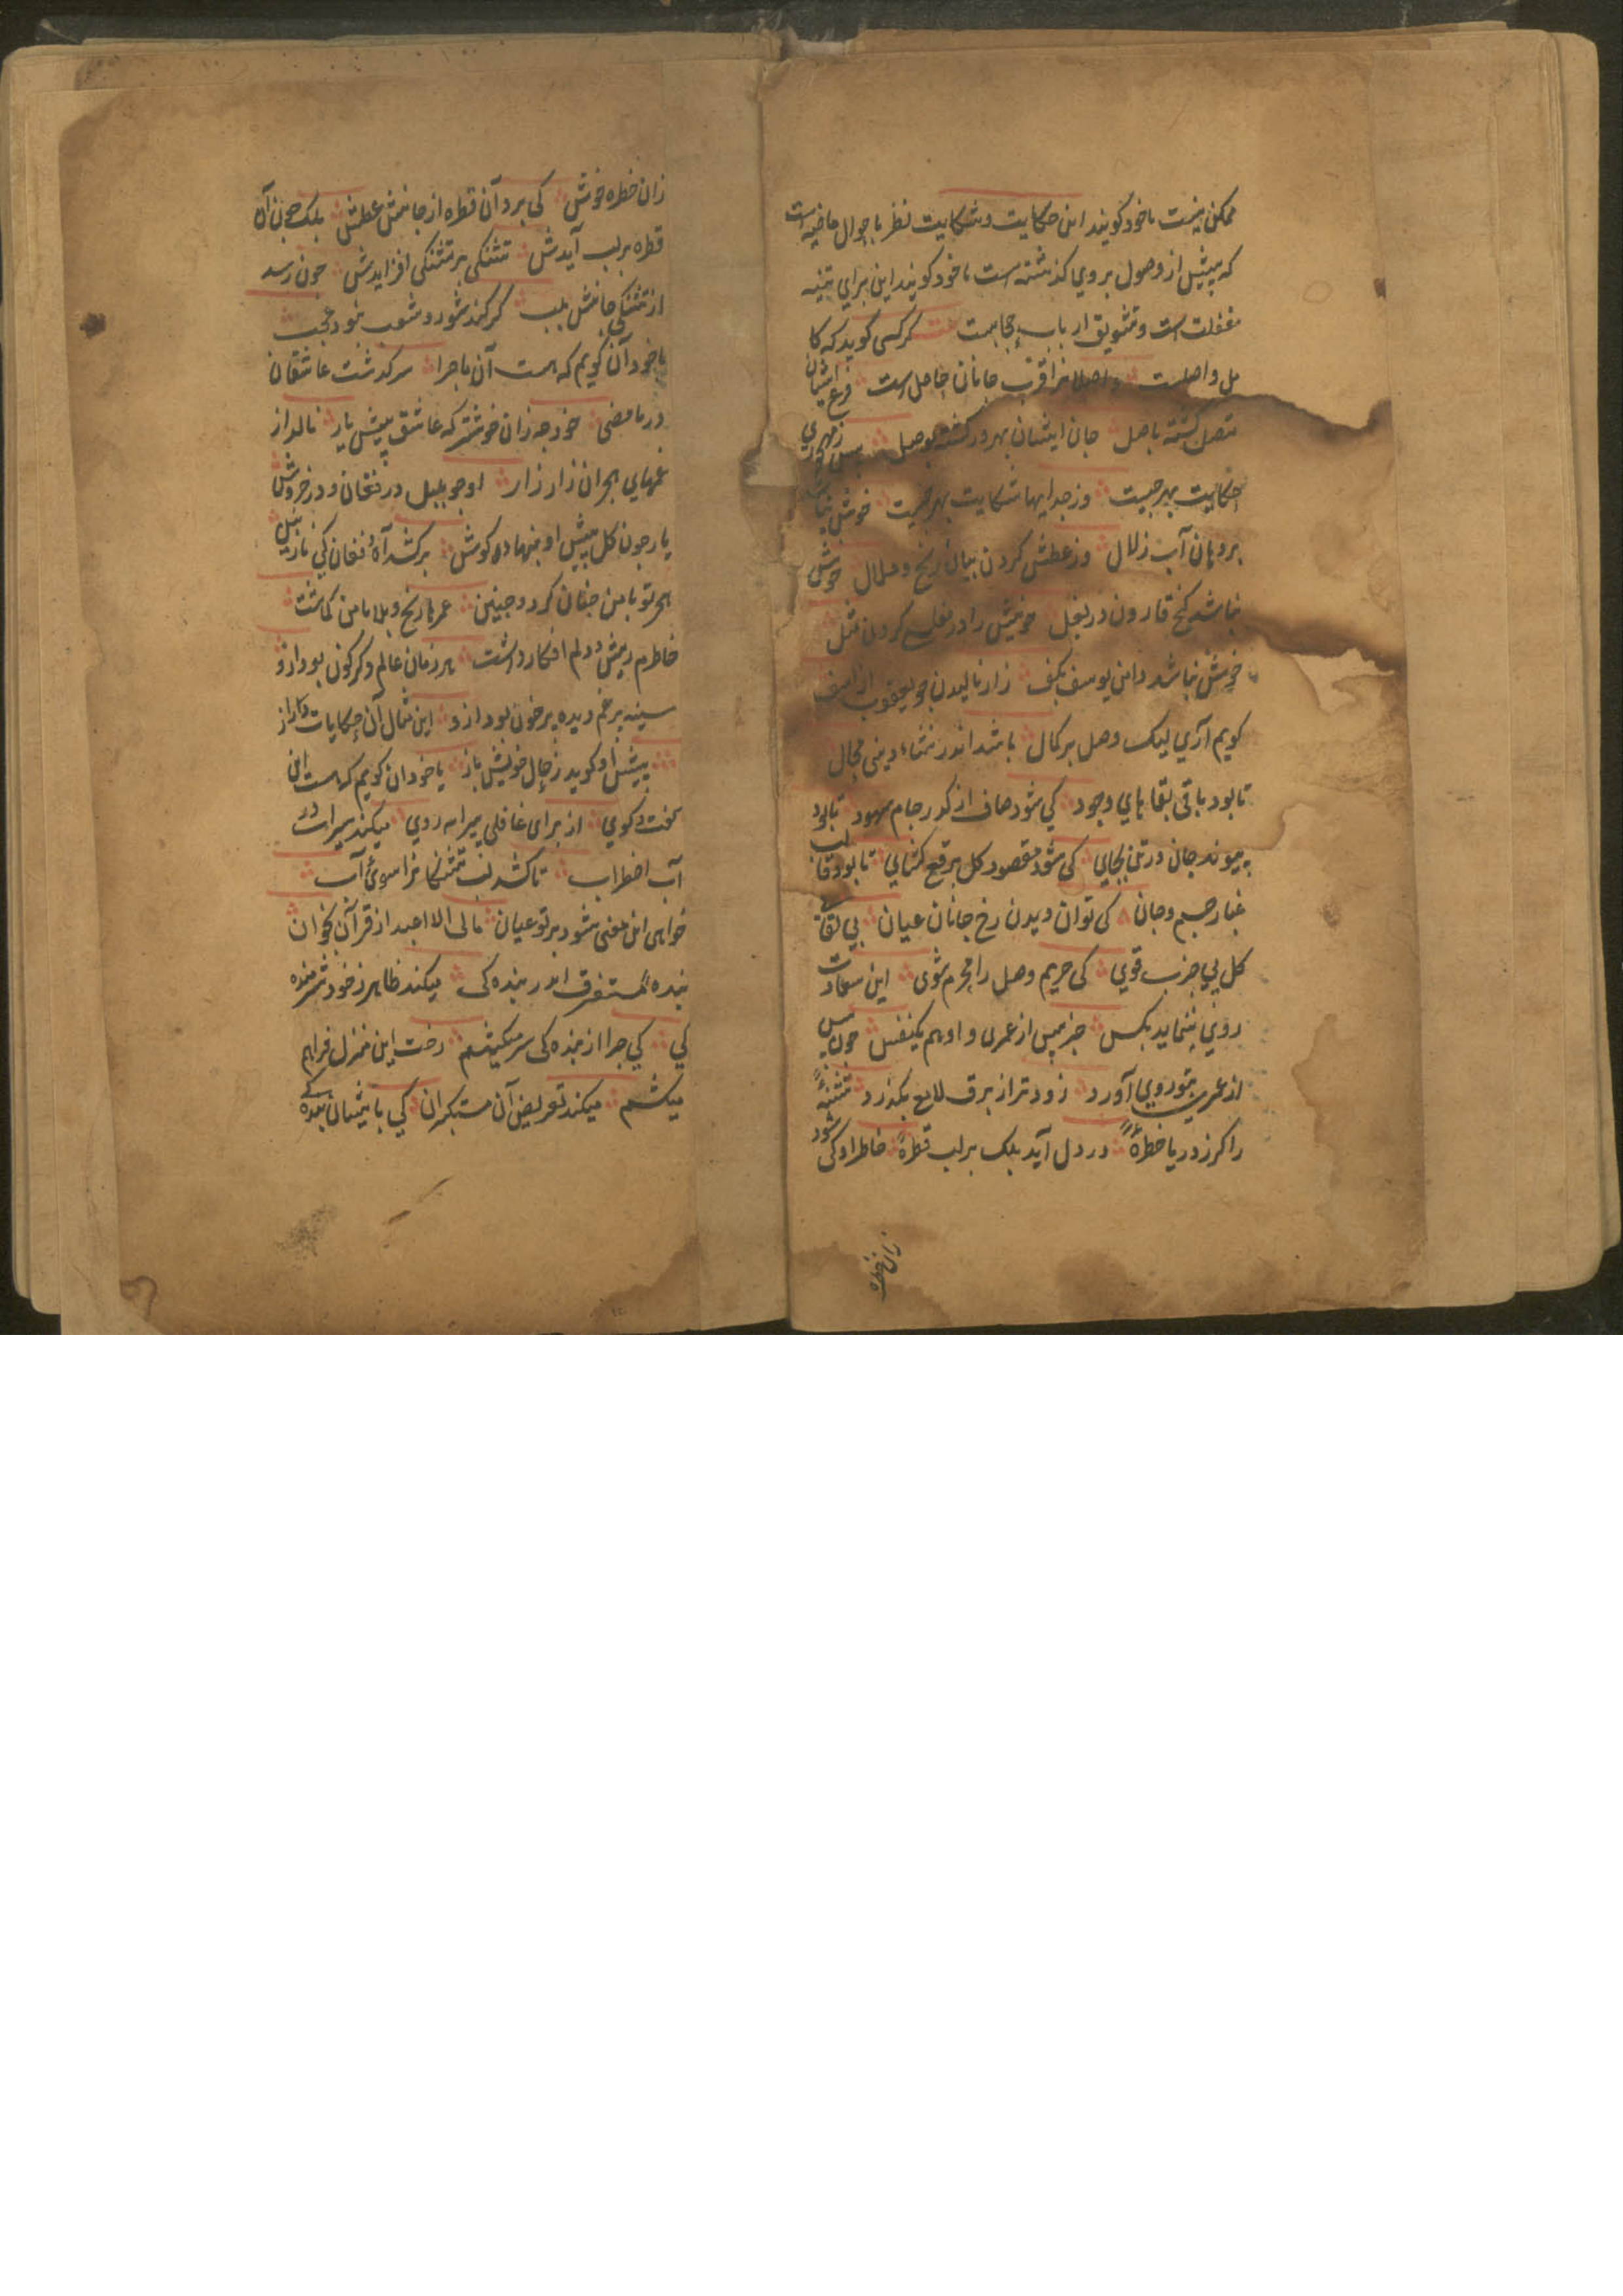 ممکن نیست یا خود کویند این حکایت و شکایت نظر باحوال ماضیه است
که پیش از وصول بروی کذشته است یا خود کویند این برای تنبیه
غفلت است و تشویق ارباب حجابست کرکسی کوید که کا
مل واصلست واصلانرا قرب جانان حاصل است فرع ایشان
متصل کشته باصل جان ایشان بهرور کشته بوصل پس ز مهجوری
حکایت بهر چیست وز جداییها شکایت بهر کیست خوش نباشد
بر دهان آب زلال وز عطش کردن بیان رنج و ملال خوش
نباشد کنج قارون در بغل خویش را در مفلسی کردن مثل
خوش نباشد دامن یوسف بکف زار نالیدن چو یعقوب از اسف
کویم آری لیک وصل بر کمال باشد اندر نشاء دینی محال
تا بود باقی بقایای وجود کی شود صاف از کدر جام شهود تا بود
پیوند جان و تن بجای کی شود مقصود کل برقع کشای تا بود قالب
غبار جسم و جان کی توان دیدن رخ جانان عیان بی لقای
کل بی جذب قوی کی حریم وصل را محرم شوی این سعادت
روی ننماید بکس جز پس از عمری و او هم یکنفس چون پس
از عمری بتو روی آورد زود تر از برق لامع بکذرد تشنهٔ
را کر ز دریا خطرهٔ در دل آید بلک بر لب قطرهٔ خاطر او کی شود
زان خطره
زان خطره خوش کی برد آن قطره از جانش عطش بلک چون آن
قطره بر لب آیدش تشنکی بر تشنکی افزایدش چون رسد
از تشنکی جانش بلب کر کند شور و شعب نبود عجب
یا خود آن کویم که هست آن ماجرا سرکذشت عاشقان
در ما مضی خود چه زان خوشتر که عاشق پیش یار نالد از
غمهای هجران زار زار او چو بلبل در فغان و در خروش
یار چون کل پیش او بنهاده کوش برکشد آه و فغان کی نازنین
هجر تو با من جفان کرد و چنین عمرها رنج و بلا با من کماشت
خاطرم ریش و دلم افکار داشت هر زمان عالم دکرکون بود ازو
سینه پر غم دیده پر خون بود ازو این مثال آن حکایات دراز
پیش او کوید ز حال خویش باز یا خود آن کویم که هست این
کفت و کوی از برای غافلی بیراه روی میکند سیراب در
آب اضطراب تا کشد لب تشنکانرا سوی آب
خواهی این معنی شود بر تو عیان مالی لا اعبد از قرآن بخوان
بندهٔ مستغرق اندر بنده کی میکند ظاهر ز خود شرمنده
کی کی چرا از بنده کی سر میکشم رخت این منزل فراهم
میکشم میکند تعریض آن مستکبران کی باینسان بنده کی